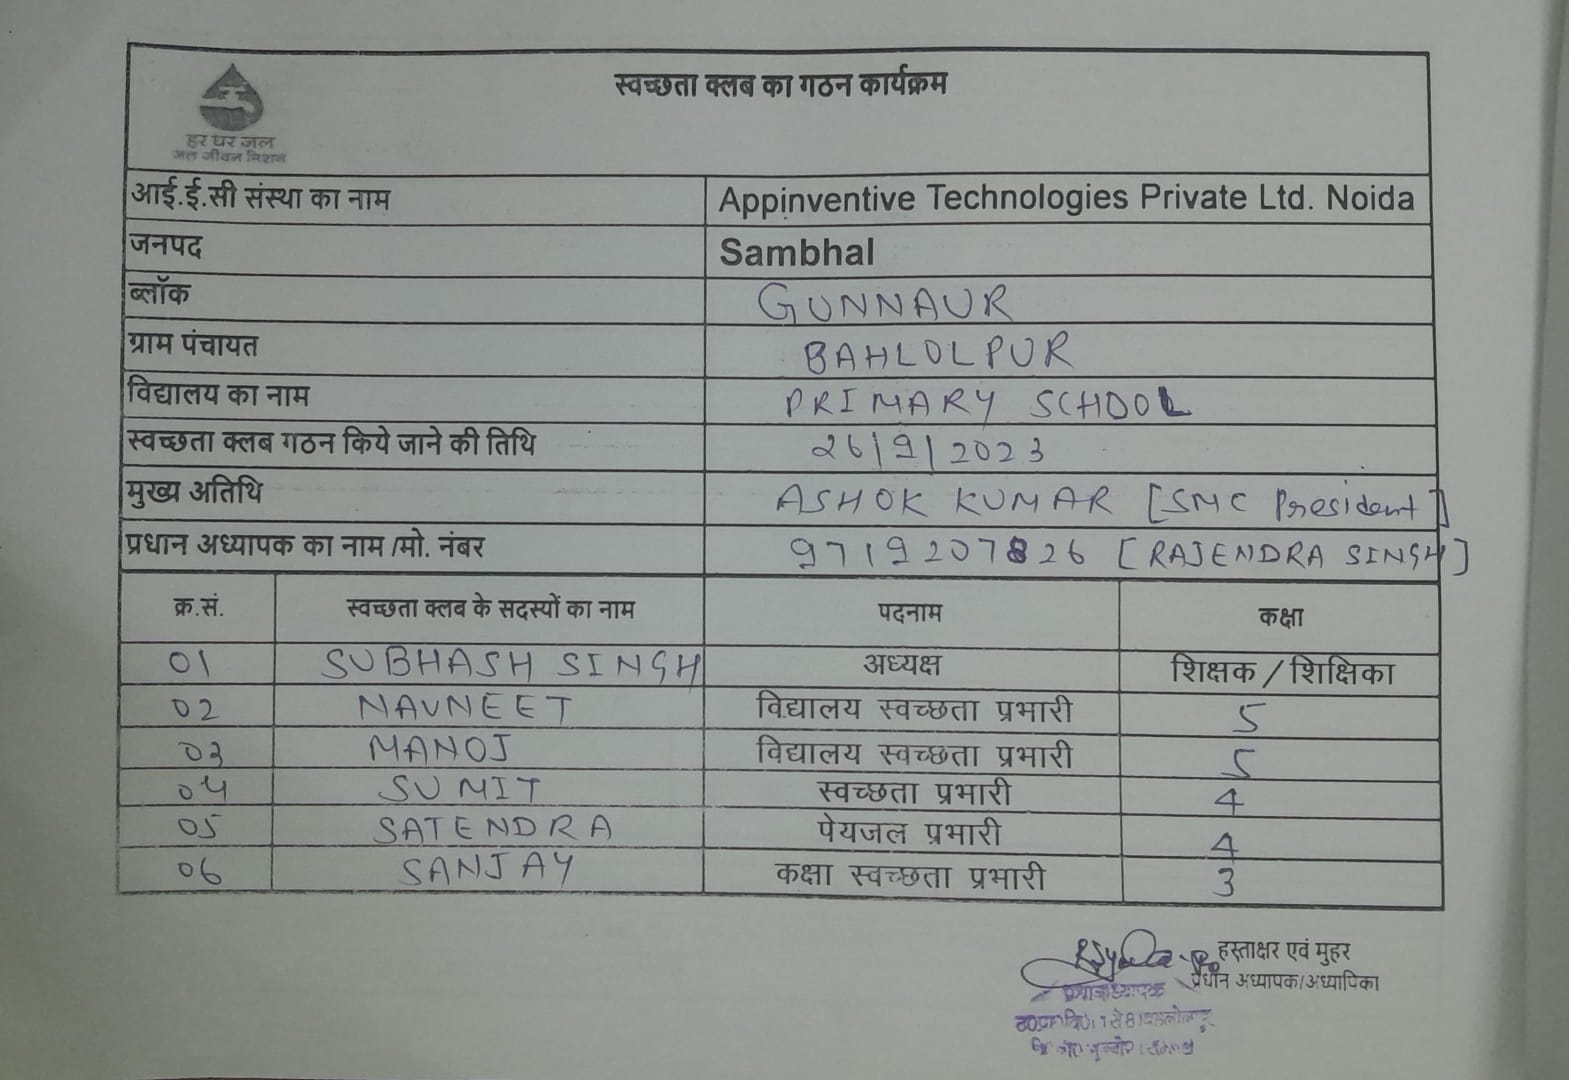 स्वच्छता क्लब का गठन कार्यक्रम
हर घर जल
जल जीवन मिशन
आई.ई.सी संस्था का नाम Appinventive Technologies Private Ltd. Noida
जनपद Sambhal
ब्लॉक GUNNAUR
ग्राम पंचायत BAHLOLPUR
विद्यालय का नाम PRIMARY SCHOOL
स्वच्छता क्लब गठन किये जाने की तिथि 26/9/2023
मुख्य अतिथि ASHOK KUMAR [SMC President]
प्रधान अध्यापक का नाम /मो. नंबर 9719207826 [RAJENDRA SINGH]
क्र.सं. स्वच्छता क्लब के सदस्यों का नाम पदनाम कक्षा
01 SUBHASH SINGH अध्यक्ष शिक्षक / शिक्षिका
02 NAVNEET विद्यालय स्वच्छता प्रभारी 5
03 MANOJ विद्यालय स्वच्छता प्रभारी 5
04 SUMIT स्वच्छता प्रभारी 4
05 SATENDRA पेयजल प्रभारी 4
06 SANJAY कक्षा स्वच्छता प्रभारी 3
हस्ताक्षर एवं मुहर
प्रधान अध्यापक/अध्यापिका